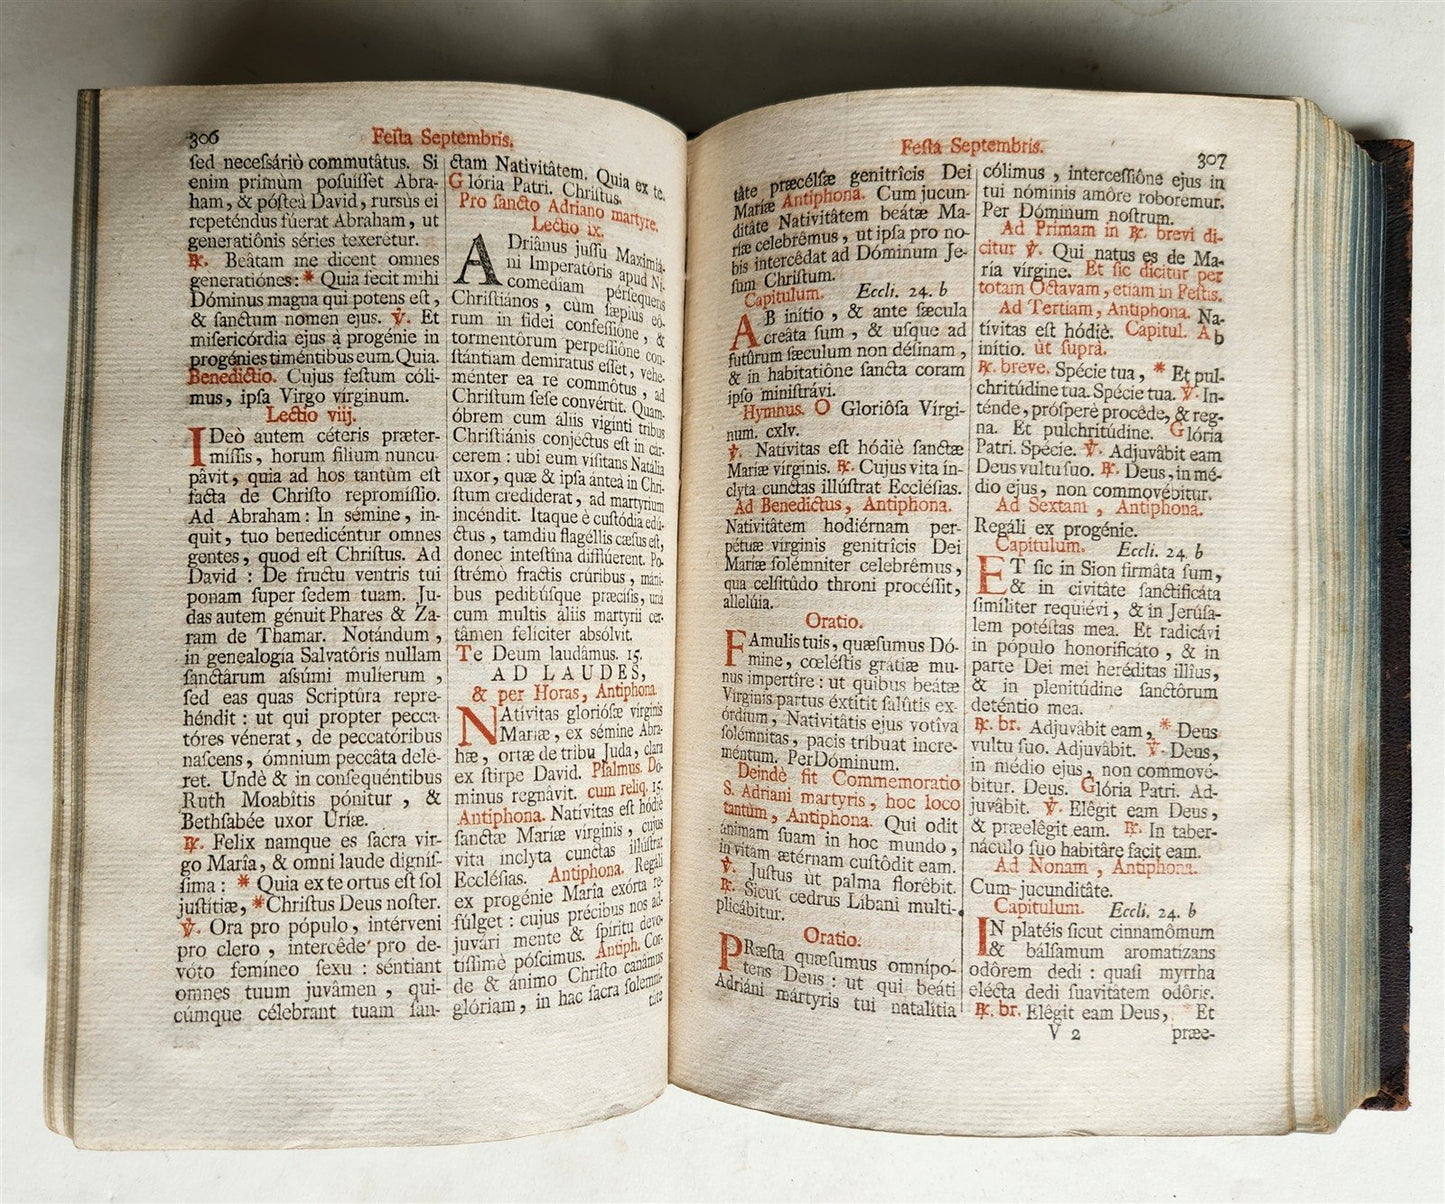 306
Feſta Septembris.
ſed neceſsáriò commutâtus. Si
enim primùm poſuiſſet Abra-
ham, & póſteà David, rursùs ei
repeténdus fúerat Abraham, ut
generatiônis séries texerétur.
℟. Beâtam me dicent omnes
generatiónes: * Quia fecit mihi
Dóminus magna qui potens eſt,
& ſanctum nomen ejus. ℣. Et
miſericórdia ejus à progénie in
progénies timéntibus eum. Quia.
Benedictio. Cujus feſtum cóli-
mus, ipſa Virgo vírginum.
Lectio viij.
IDeò autem céteris præter-
míſſis, horum filium nuncu-
pâvit, quia ad hos tantùm eſt
facta de Chriſto repromíſſio.
Ad Abraham: In sémine, in-
quit, tuo benedicéntur omnes
gentes, quod eſt Chriſtus. Ad
David : De fructu ventris tui
ponam ſuper ſedem tuam. Ju-
das autem génuit Phares & Za-
ram de Thamar. Notándum,
in genealogía Salvatôris nullam
ſanctârum aſsúmi mulíerum,
ſed eas quas Scriptúra repre-
héndit : ut qui propter pecca-
tóres vénerat, de peccatóribus
naſcens, ómnium peccâta delê-
ret. Undè & in conſequéntibus
Ruth Moabîtis pónitur, &
Bethſabée uxor Uríæ.
℟. Felix namque es ſacra vir-
go María, & omni laude digníſ-
ſima : * Quia ex te ortus eſt ſol
juſtítiæ, * Chriſtus Deus noſter.
℣. Ora pro pópulo, intérveni
pro clero, intercêde pro de-
vóto femíneo ſexu : séntiant
omnes tuum juvâmen, qui-
cúmque célebrant tuam ſan-
ctam Nativitâtem. Quia ex te.
Glória Patri. Chriſtus.
Pro ſancto Adriano martyre.
Lectio ix.
ADriânus juſſu Maximiá-
ni Imperatôris apud Ni-
comediam pérſequens
Chriſtiános, cùm ſæpius eô-
rum in fídei confeſſiône, &
tormentôrum perpeſſiône con-
ſtántiam demirátus eſſet, vehe-
ménter ea re commôtus, ad
Chriſtum ſeſe convértit. Quam-
óbrem cum áliis viginti tribus
Chriſtiánis conjéctus eſt in cár-
cerem : ubi eum viſitans Natália
uxor, quæ & ipſa ántea in Chri-
ſtum crediderat, ad martyrium
incéndit. Itaque è cuſtódia edú-
ctus, tamdiu flagéllis cæſus eſt,
donec inteſtîna difflúerent. Po-
ſtrémò fractis crúribus, máni-
bus pedibúſque præcíſis, unà
cum multis áliis martyrii cer-
támen feliciter absólvit.
Te Deum laudâmus. 15.
AD LAUDES,
& per Horas, Antiphona.
NAtívitas glorióſæ virginis
Mariæ, ex sémine Abra-
hæ, ortæ de tribu Juda, clara
ex ſtirpe David. Pſalmus. Do-
minus regnâvit. cum reliq. 15.
Antiphona. Natívitas eſt hódiè
ſanctæ Maríæ vírginis, cujus
vita ínclyta cunctas illúſtrat
Eccléſias. Antiphona. Regáli
ex progénie María exórta re-
fúlget : cujus précibus nos ad-
juvári mente & ſpíritu devo-
tíſſimè póſcimus. Antiph. Cor-
de & ánimo Chriſto canámus
glóriam, in hac ſacra ſolemni-
tâte
Feſta Septembris.
307
tâte præcélſæ genitrîcis Dei
Mariæ Antiphona. Cum jucun-
ditâte Nativitâtem beátæ Ma-
ríæ celebrêmus, ut ipſa pro no-
bis intercêdat ad Dóminum Je-
ſum Chriſtum.
Capitulum. Eccli. 24. b
AB inítio, & ante ſæcula
creáta ſum, & uſque ad
futûrum ſæculum non déſinam,
& in habitatiône ſancta coram
ipſo miniſtrávi.
Hymnus. O Gloriôſa Vírgi-
num. cxlv.
℣. Natívitas eſt hódiè ſanctæ
Mariæ vírginis. ℟. Cujus vita ín-
clyta cunctas illúſtrat Ecclésias.
Ad Benedictus, Antiphona.
Nativitâtem hodiérnam per-
pétuæ vírginis genitrîcis Dei
Maríæ ſolémniter celebrêmus,
qua celſitûdo throni procéſſit,
allelúia.
Oratio.
FAmulis tuis, quæſumus Dó-
mine, cœléſtis grátiæ mu-
nus impertire : ut quibus beátæ
Vírginis partus éxtitit ſalûtis ex-
órdium, Nativitâtis ejus votíva
ſolémnitas, pacis tribuat incre-
méntum. Per Dóminum.
Deindè fit Commemoratio
S. Adriani martyris, hoc loco
tantùm, Antiphona. Qui odit
ánimam ſuam in hoc mundo,
in vitam ætérnam cuſtôdit eam.
℣. Juſtus ùt palma florêbit.
℟. Sicut cedrus Líbani multi-
plicábitur.
Oratio.
PRæſta quæſumus omnípo-
tens Deus : ut qui beáti
Adriáni mártyris tui natalítia
cólimus, interceſſiône ejus in
tui nóminis amôre roboremur.
Per Dóminum noſtrum.
Ad Primam in ℟. brevi di-
citur ℣. Qui natus es de Ma-
ría vírgine. Et ſic dicitur per
totam Octavam, etiam in Feſtis.
Ad Tertiam, Antiphona. Na-
tívitas eſt hódiè. Capitul. Ab
inítio. ùt ſuprà.
℟. breve. Spécie tua, * Et pul-
chritúdine tua. Spécie tua. ℣. In-
ténde, próſperè procêde, & reg-
na. Et pulchritúdine. Glória
Patri. Spécie. ℣. Adjuvâbit eam
Deus vultu ſuo. ℟. Deus, in mé-
dio ejus, non commovébitur.
Ad Sextam, Antiphona.
Regáli ex progénie.
Capitulum. Eccli. 24. b
ET ſic in Sion firmâta ſum,
& in civitâte ſanctificáta
ſimíliter requiévi, & in Jerúſa-
lem potéſtas mea. Et radicávi
in pópulo honorificáto, & in
parte Dei mei heréditas illîus,
& in plenitúdine ſanctôrum
deténtio mea.
℟. br. Adjuvâbit eam, * Deus
vultu ſuo. Adjuvâbit. ℣. Deus,
in médio ejus, non commové-
bitur. Deus. Glória Patri. Ad-
juvâbit. ℣. Elêgit eam Deus,
& præelêgit eam. ℟. In taber-
náculo ſuo habitâre facit eam.
Ad Nonam, Antiphona.
Cum jucunditâte.
Capitulum. Eccli. 24. b
IN platéis ſicut cinnamômum
& bálſamum aromatízans
odôrem dedi : quaſi myrrha
elécta dedi ſuavitâtem odôris.
℟. br. Elêgit eam Deus, * Et
V 2
præe-